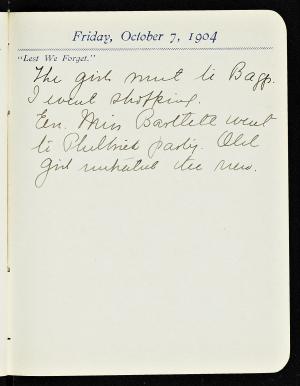 Friday, October 7, 1904
"Lest We Forget."
The girls went to Baggs.
I went shopping.
Eve. Miss Bartlett went
to Philbrick party. Old
girl initiated the new.